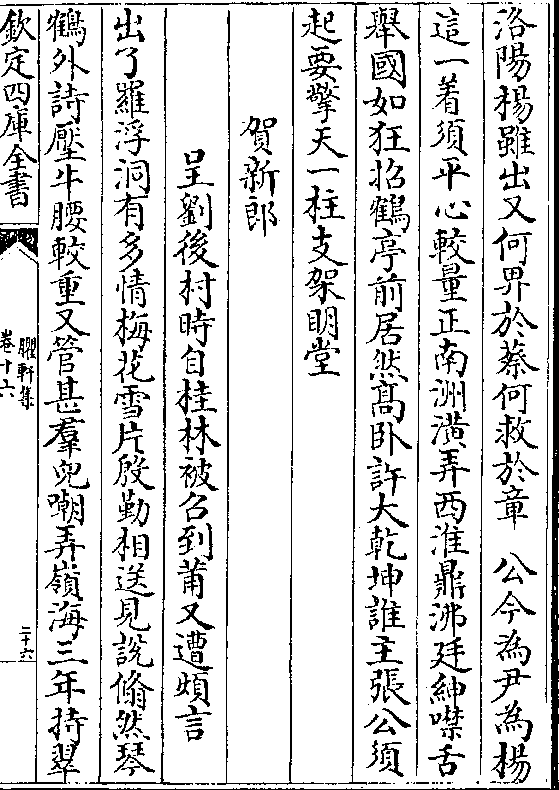 洛陽楊雖出又何畀於蔡何救於章　公今為尹為楊
這一着須平心較量正南洲潢弄西淮鼎沸廷紳噤舌
舉國如狂招鶴亭前居然髙卧許大乾坤誰主張公須
起要擎天一柱支架明堂
賀新郎
呈劉後村時自桂林被召到莆又遭煩言
出了羅浮洞有多情梅花雪片殷勤相送見說翛然琴
鶴外詩壓牛腰較重又管甚羣兒嘲弄嶺海三年持翠
欽定四庫全書
臞軒集
卷十六
二十六